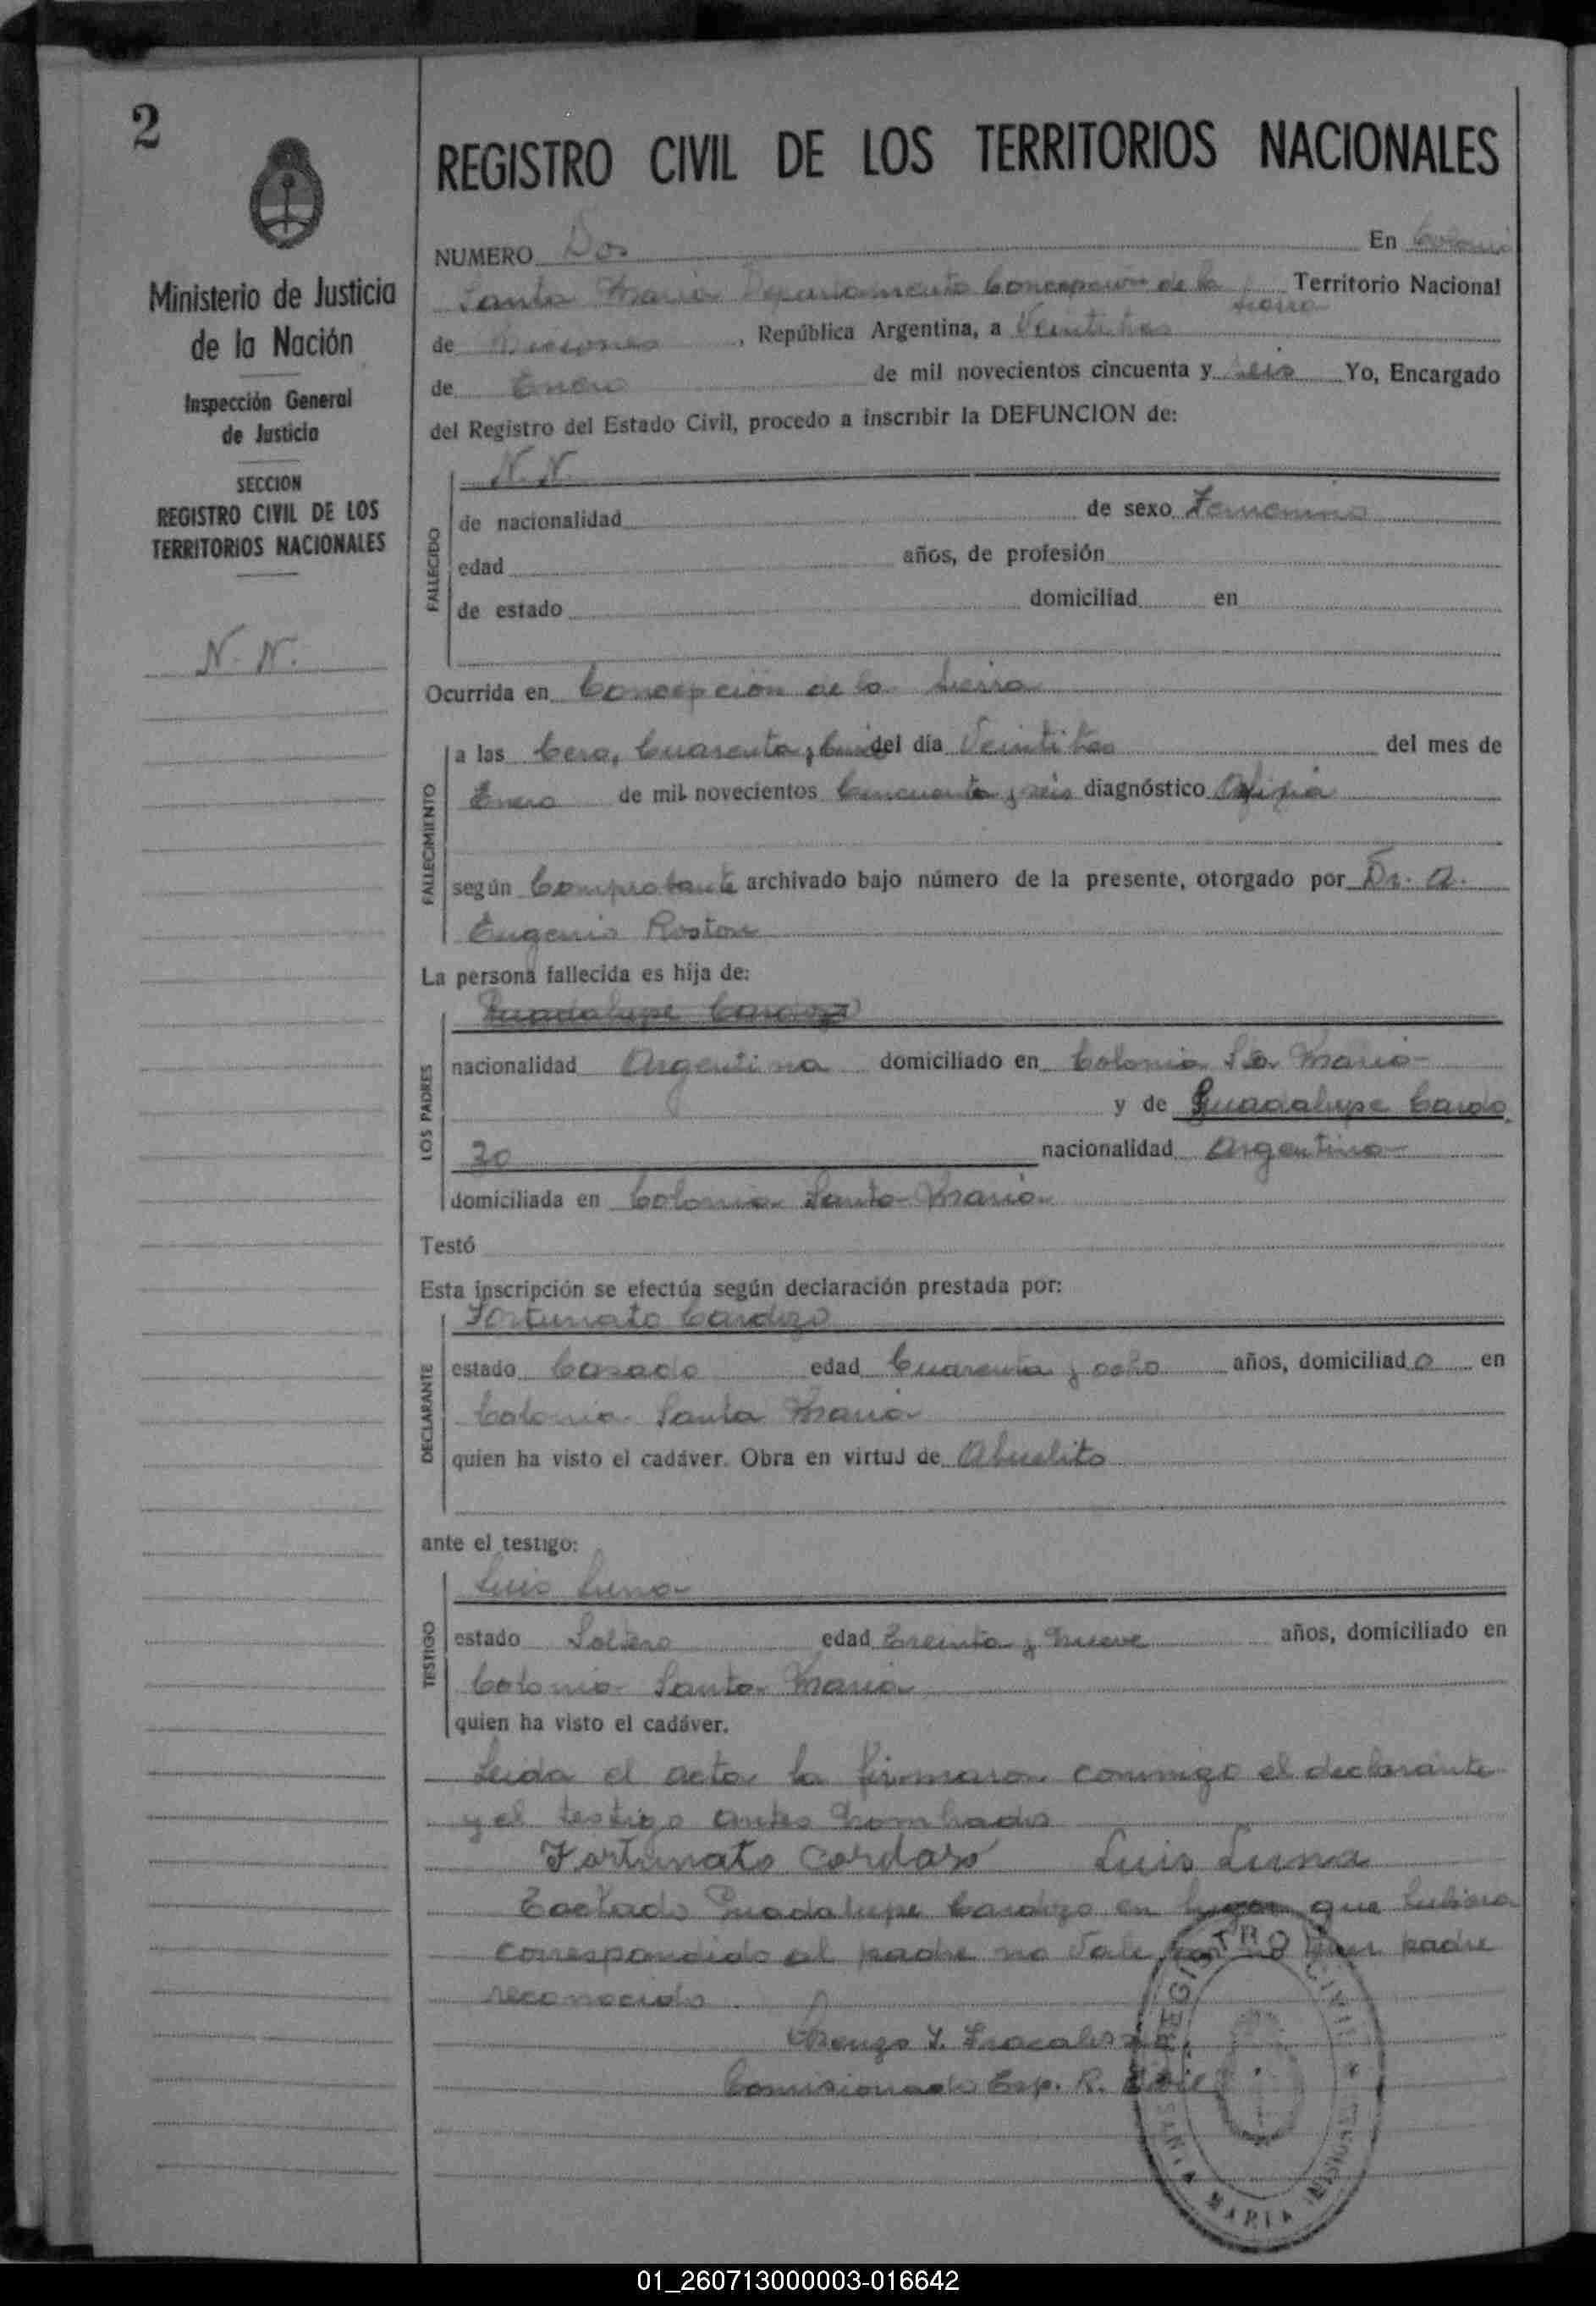 2
Ministerio de Justicia
de la Nación
Inspección General
de Justicia
SECCION
REGISTRO CIVIL DE LOS
TERRITORIOS NACIONALES
N. N.
REGISTRO CIVIL DE LOS TERRITORIOS NACIONALES
NUMERO Dos En Colonia
Santa Maria Departamento Concepcion de la Sierra Territorio Nacional
de Misiones, República Argentina, a Veintitres
de Enero de mil novecientos cincuenta y seis Yo, Encargado
del Registro del Estado Civil, procedo a inscribir la DEFUNCION de:
FALLECIDO
N. N.
de nacionalidad de sexo Femenino
edad años, de profesión
de estado domiciliad en
Ocurrida en Concepcion de la Sierra
FALLECIMIENTO
a las Cero, Cuarenta y del día Veintitres del mes de
Enero de mil novecientos Cincuenta y seis diagnóstico Asfixia
según Comprobante archivado bajo número de la presente, otorgado por Dr. A.
Eugenio Roston
La persona fallecida es hija de:
LOS PADRES
Guadalupe Cardozo
nacionalidad Argentina domiciliado en Colonia Sta Maria
y de Guadalupe Cardo
zo nacionalidad Argentina
domiciliada en Colonia Santa Maria
Testó
Esta inscripción se efectúa según declaración prestada por:
DECLARANTE
Fortunato Cardozo
estado Casado edad Cuarenta y ocho años, domiciliado en
Colonia Santa Maria
quien ha visto el cadáver. Obra en virtud de Abuelito
ante el testigo:
TESTIGO
Luis Luna
estado Soltero edad Treinta y nueve años, domiciliado en
Colonia Santa Maria
quien ha visto el cadáver.
Leida el acta la firmaron conmigo el declarante
y el testigo antes nombrados
Fortunato Cordaso Luis Luna
Testado Guadalupe Cardozo en lugar que hubiera
correspondido al padre no vale por no tener padre
reconocido
Comisionado Esp. R. Civil
REGISTRO CIVIL
SANTA MARIA MISIONES
01_260713000003-016642